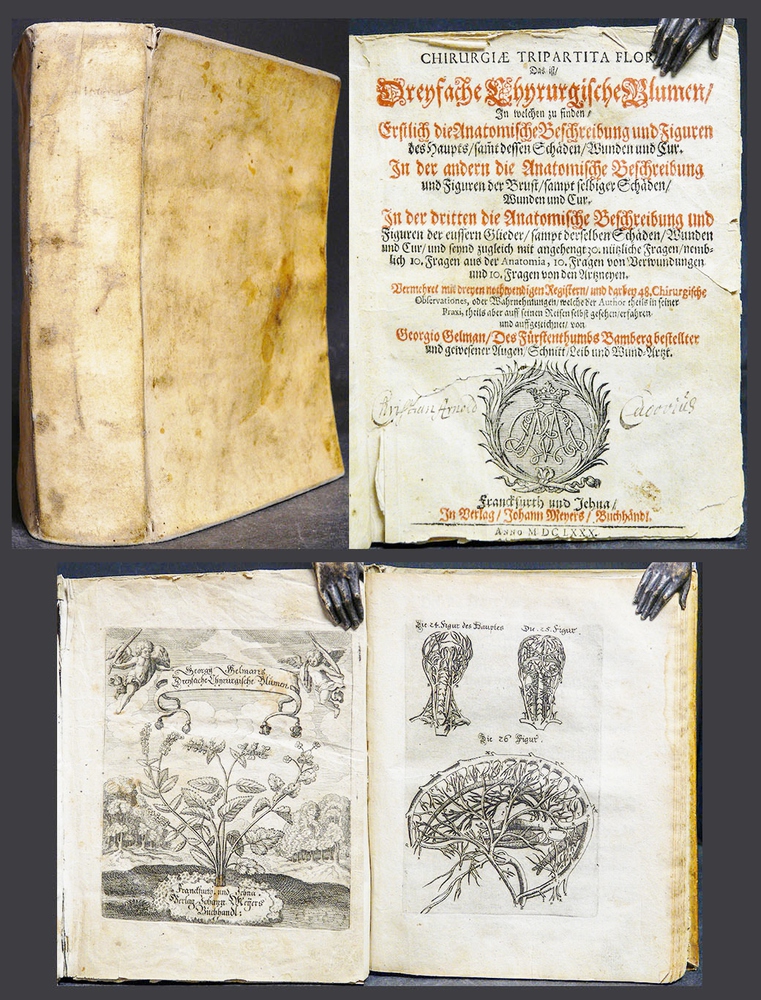 CHIRURGIÆ TRIPARTITA FLOR
Das ist/
Dreyfache Chyrurgische Blumen/
In welchen zu finden/
Erstlich die Anatomische Beschreibung und Figuren
des Haupts/ sam̃t dessen Schäden/ Wunden und Cur.
In der andern die Anatomische Beschreibung
und Figuren der Brust/ sampt selbiger Schäden/
Wunden und Cur.
In der dritten die Anatomische Beschreibung und
Figuren der eussern Glieder/ sampt derselben Schäden/ Wunden
und Cur/ und seynd zugleich mit angehengt 30. nützliche Fragen/ nemb-
lich 10. Fragen aus der Anatomia, 10. Fragen von Verwundungen
und 10. Fragen von den Artzneyen.
Vermehret mit dreyen nothwendigen Registern/ und darbey 48. Chirurgische
Observationes, oder Wahrnehmungen/ welche der Author theils in seiner
Praxi, theils aber auff seinen Reisen selbst gesehen/ erfahren/
und auffgezeichnet von
Georgio Gelman/ Des Fürstenthumbs Bamberg bestellter
und gewesener Augen/ Schnitt/ Leib und Wund-Artzt.
Christian Arnold
Franckfurth und Jehna/
In Verlag/ Johann Meyers/ Buchhändl.
ANNO M DC LXXX.
Georgy Gelmans
Dreyfache Chyrurgische Blumen.
Franckfurth und Jehna
Verlag Johann Meyers
Buchhandl:
Die 24. Figur des Hauptes
Die 25. Figur.
Die 26 Figur.